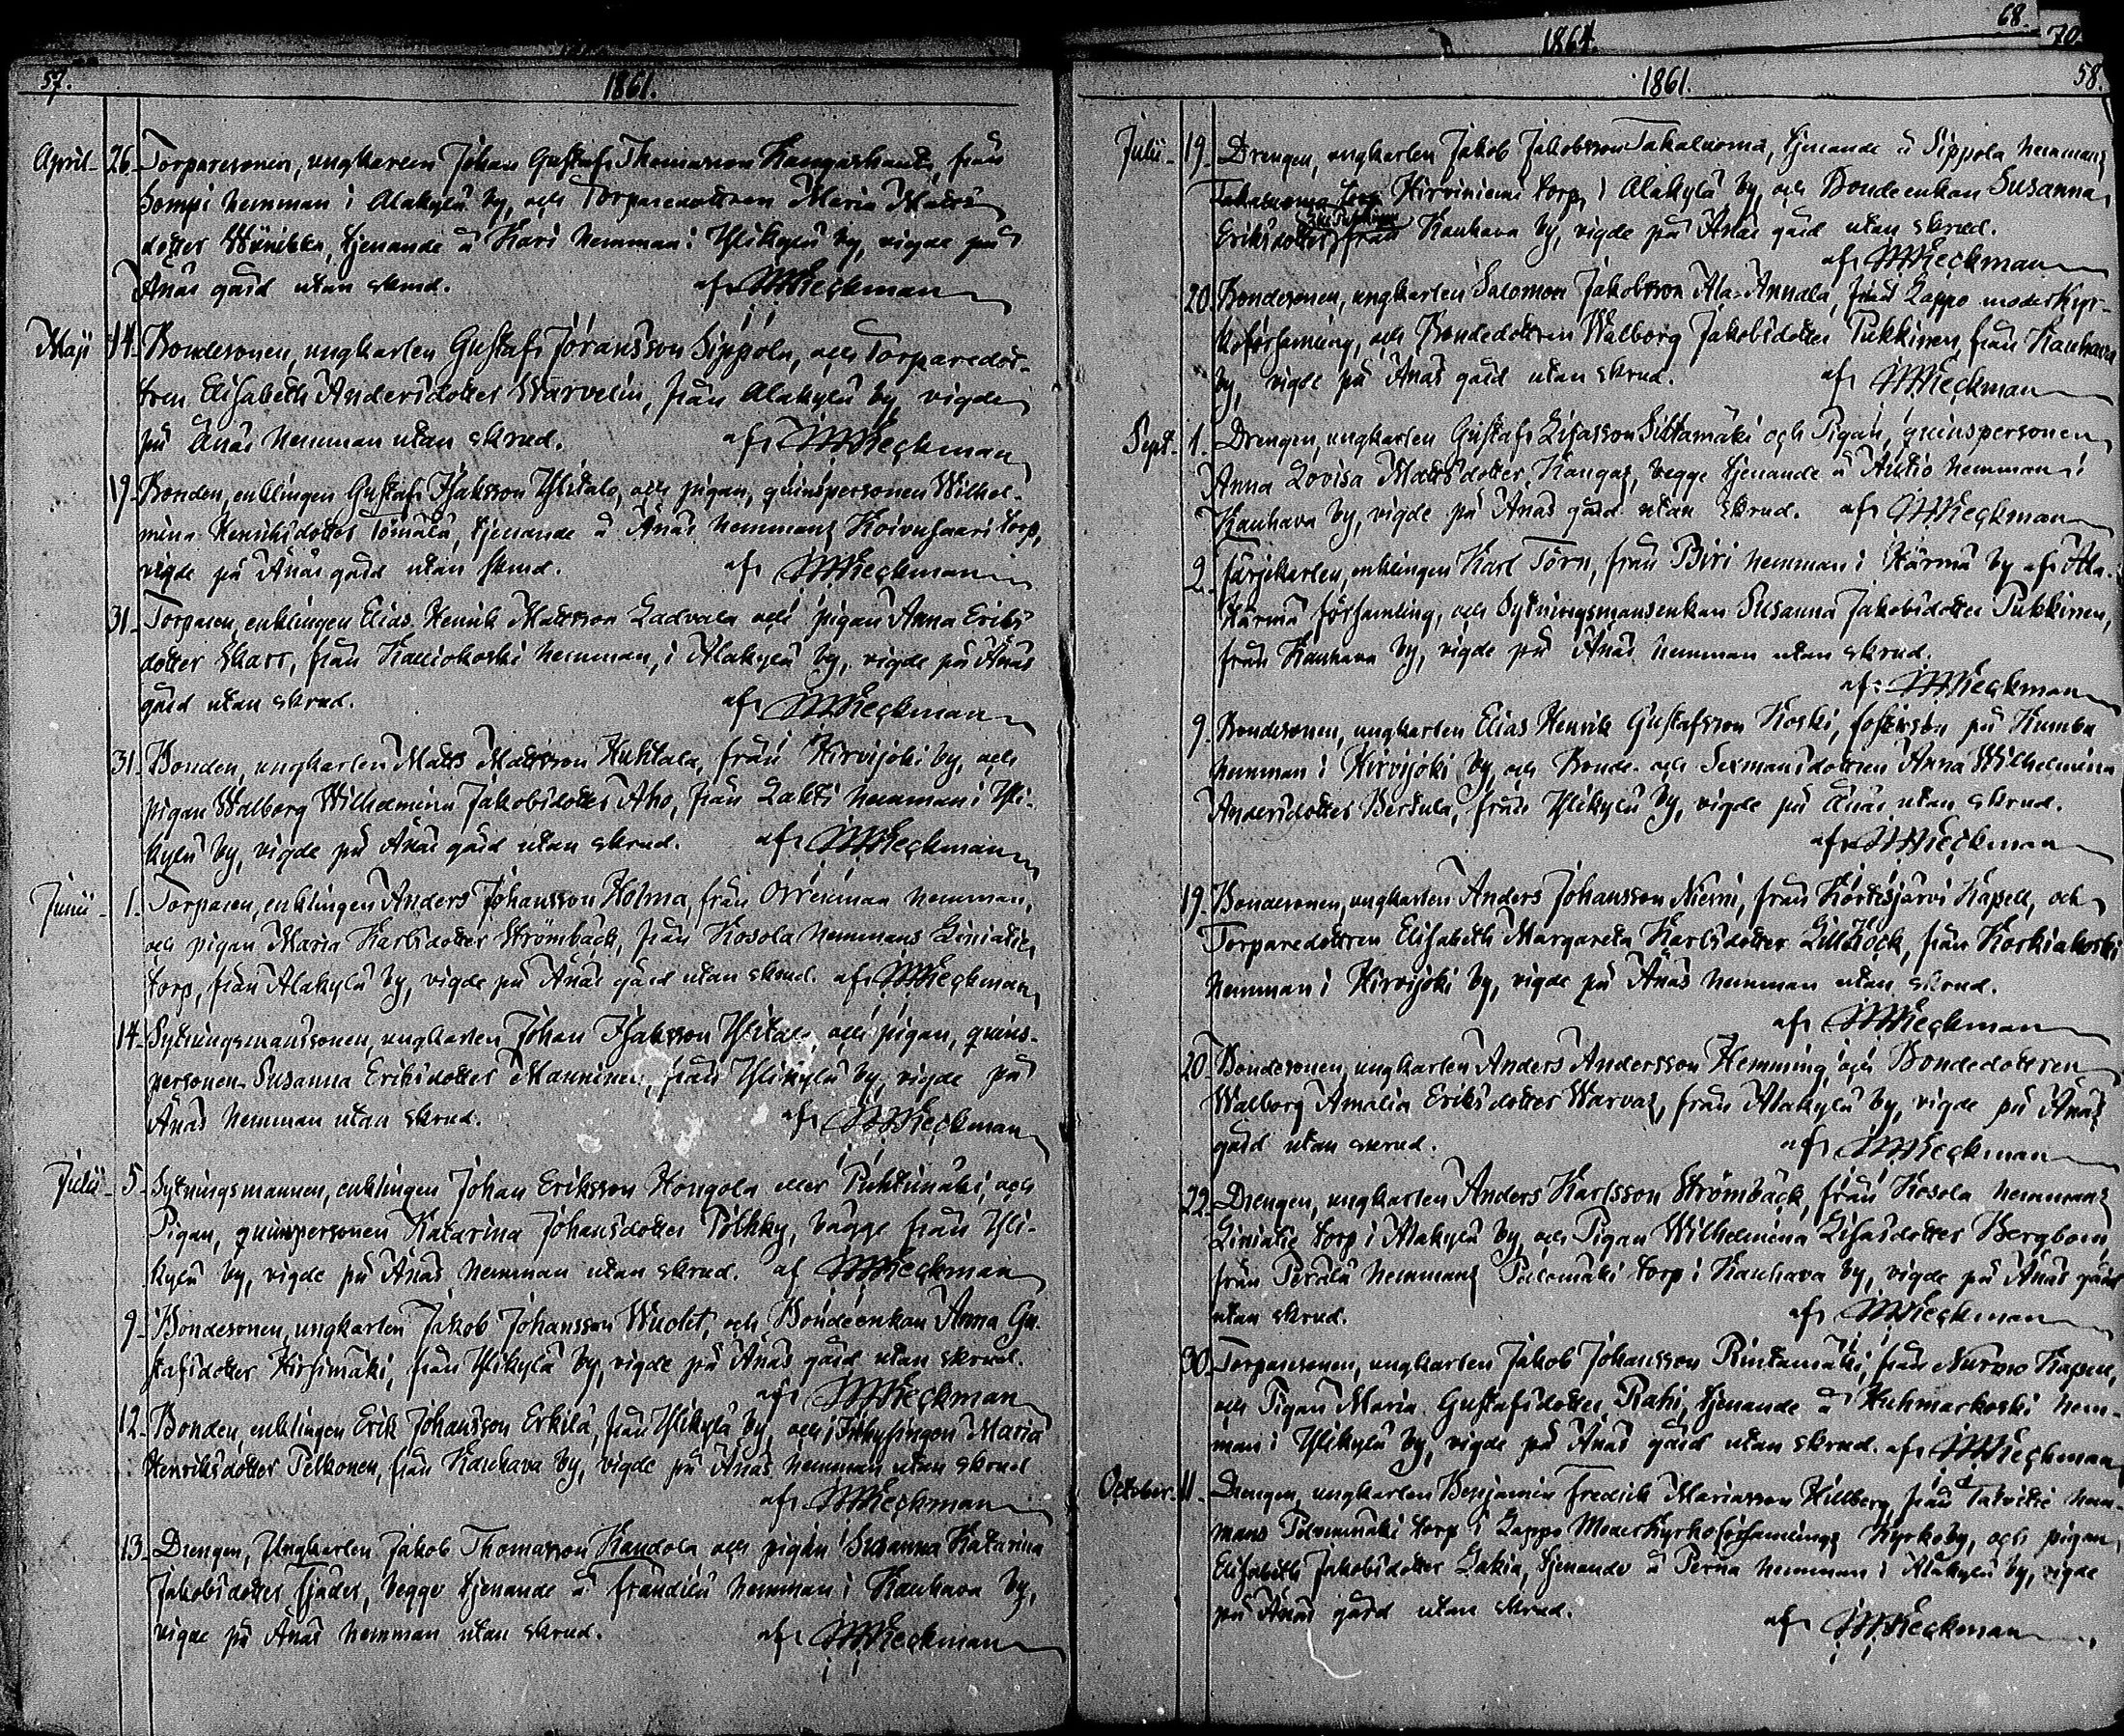 68.
1864. 70.
57. 1861.
April 26. Torparesonen, ungkarlen Johan Gustaf Thomasson Kangashauta, från
Sompi hemman i Alakylä by, och Torparedottren Maria Matts
dotter tjenande å Kari hemman i Ylikylä by, vigde på
Ånäs gård utan skrud. af MWeckman
Maji 14. Bondesonen, ungkarlen Gustaf Jöransson Sippola, och Torparedot-
tren Elisabeth Andersdotter Warvelin, från Alakylä by, vigde
på Ånäs hemman utan skrud. af MWeckman
19. Bonden, enklingen Gustaf Isaksson Ylitalo, och pigan, qvinspersonen Wilhel-
mina Henriksdotter Törnälä, tjenande å Ånäs hemmans Koivusaari torp,
vigde på Ånäs gård utan skrud. af MWeckman
31. Torparen, enklingen Elias Henrik Mattsson Ladvala och pigan Anna Eriks
dotter Skarr, från Kauciokoski hemman, i Alakylä by, vigde på Ånäs
gård utan skrud. af MWeckman
31. Bonden, ungkarlen Matts Mattsson Huhtala, från Hirvijoki by, och
pigan Walborg Wilhelmina Jakobsdotter Aho, från Lahti hemman i Yli-
kylä by, vigde på Ånäs gård utan skrud. af MWeckman
Junii 1. Torparen, enklingen Anders Johansson Holma, från Orrenmaa hemman,
och pigan Maria Karlsdotter Strömbäck, från Kosola hemmans Liniatie
torp, från Alakylä by, vigde på Ånäs gård utan skrud. af MWeckman
14. Sytningsmanssonen, ungkarlen Johan Isaksson Ylitalo, och pigan, qvins-
personen Susanna Eriksdotter Manninen, från Ylikylä by, vigde på
Ånäs hemman utan skrud. af MWeckman
Julii 5. Sytningsmannen, enklingen Johan Eriksson Hongola eller Puhtimäki, och
Pigan, qvinspersonen Katarina Johansdotter Pölkky, bägge från Yli-
kylä by, vigde på Ånäs hemman utan skrud. af MWeckman
9. Bondesonen, ungkarlen Jakob Johansson Wuolet, och Bondeenkan Anna Gu-
stafsdotter Hirsimäki, från Ylikylä by, vigde på Ånäs gård utan skrud.
af MWeckman
12. Bonden, enklingen Erik Johansson Erkilä, från Ylikylä by, och Inhysingen Maria
Henriksdotter Pelkonen, från Kauhava by, vigde på Ånäs hemman utan skrud
af MWeckman
13. Drengen, Ungkarlen Jakob Thomasson Kandola och pigan Susanna Katarina
Jakobsdotter Fjäder, begge tjenande å Frändilä hemman i Kauhava by,
vigde på Ånäs hemman utan skrud. af MWeckman
1861. 58.
Julii 19. Drengen, ungkarlen Jakob Jakobsson Takaluoma, tjenande å Sippola hemmans
Takaluoma torp Hirviniemi torp, i Alakylä by, och Bondeenkan Susanna
Eriksdotter, från Kauhava by, vigde på Ånäs gård utan skrud.
af MWeckman
20. Bondesonen, ungkarlen Salomon Jakobsson Ala-Annala, från Lappo moderkyr-
koförsamling, och Bondedottren Walborg Jakobsdotter Pukkinen, från Kauhava
by, vigde på Ånäs gård utan skrud. af MWeckman
Sept. 1. Drengen, ungkarlen Gustaf Lisasson Siltamäki och Pigan, qvinspersonen
Anna Lovisa Mattsdotter Kangas, begge tjenande å Antio hemman i
Kauhava by, vigde på Ånäs gård utan skrud. af MWeckman
2. Färjekarlen, enklingen Karl Törn, från Biri hemman i Härmä by af Ala-
Härmä församling, och Sytningsmansenkan Susanna Jakobsdotter Pukkinen,
från Kauhava by, vigde på Ånäs hemman utan skrud.
af MWeckman
9. Bondesonen, ungkarlen Elias Henrik Gustafsson Koski, fosterson på Kumba
hemman i Hirvijoki by, och Bonde- och Sexmansdottren Anna Wilhelmina
Andersdotter Bertula, från Ylikylä by, vigde på Ånäs utan skrud.
af MWeckman
19. Bondesonen, ungkarlen Anders Johansson Niemi, från Kortesjärvi Kapell, och
Torparedottren Elisabeth Margareta Karlsdotter Lillkock, från Koskiakoski
hemman i Hirvijoki by, vigde på Ånäs hemman utan skrud.
af MWeckman
20. Bondesonen, ungkarlen Anders Andersson Hemming, och Bondedottren
Walborg Amalia Eriksdotter Warvas, från Alakylä by, vigde på Ånäs
gård utan skrud. af MWeckman
22. Drengen, ungkarlen Anders Karlsson Strömbäck, från Kosola hemmans
Liniatie torp i Alakylä by, och Pigan Wilhelmina Lisasdotter Bergbom,
från Perälä hemmans Palomäki torp i Kauhava by, vigde på Ånäs gård
utan skrud. af MWeckman
30. Torparesonen, ungkarlen Jakob Johansson Rintamäki, från Nurmo Kapell,
och Pigan Maria Gustafsdotter Rahi, tjenande å Huhmarkoski hem-
man i Ylikylä by, vigde på Ånäs gård utan skrud. af MWeckman
October. 11. Drengen, ungkarlen Benjamin Fredrik Mariasson Hillberg, från Talvitie hem-
mans torp i Lappo Moderkyrkoförsamlings Kyrkoby, och pigan,
Elisabeth Jakobsdotter Lakia, tjenande å Perna hemman i Alakylä by, vigde
på Ånäs gård utan skrud. af MWeckman